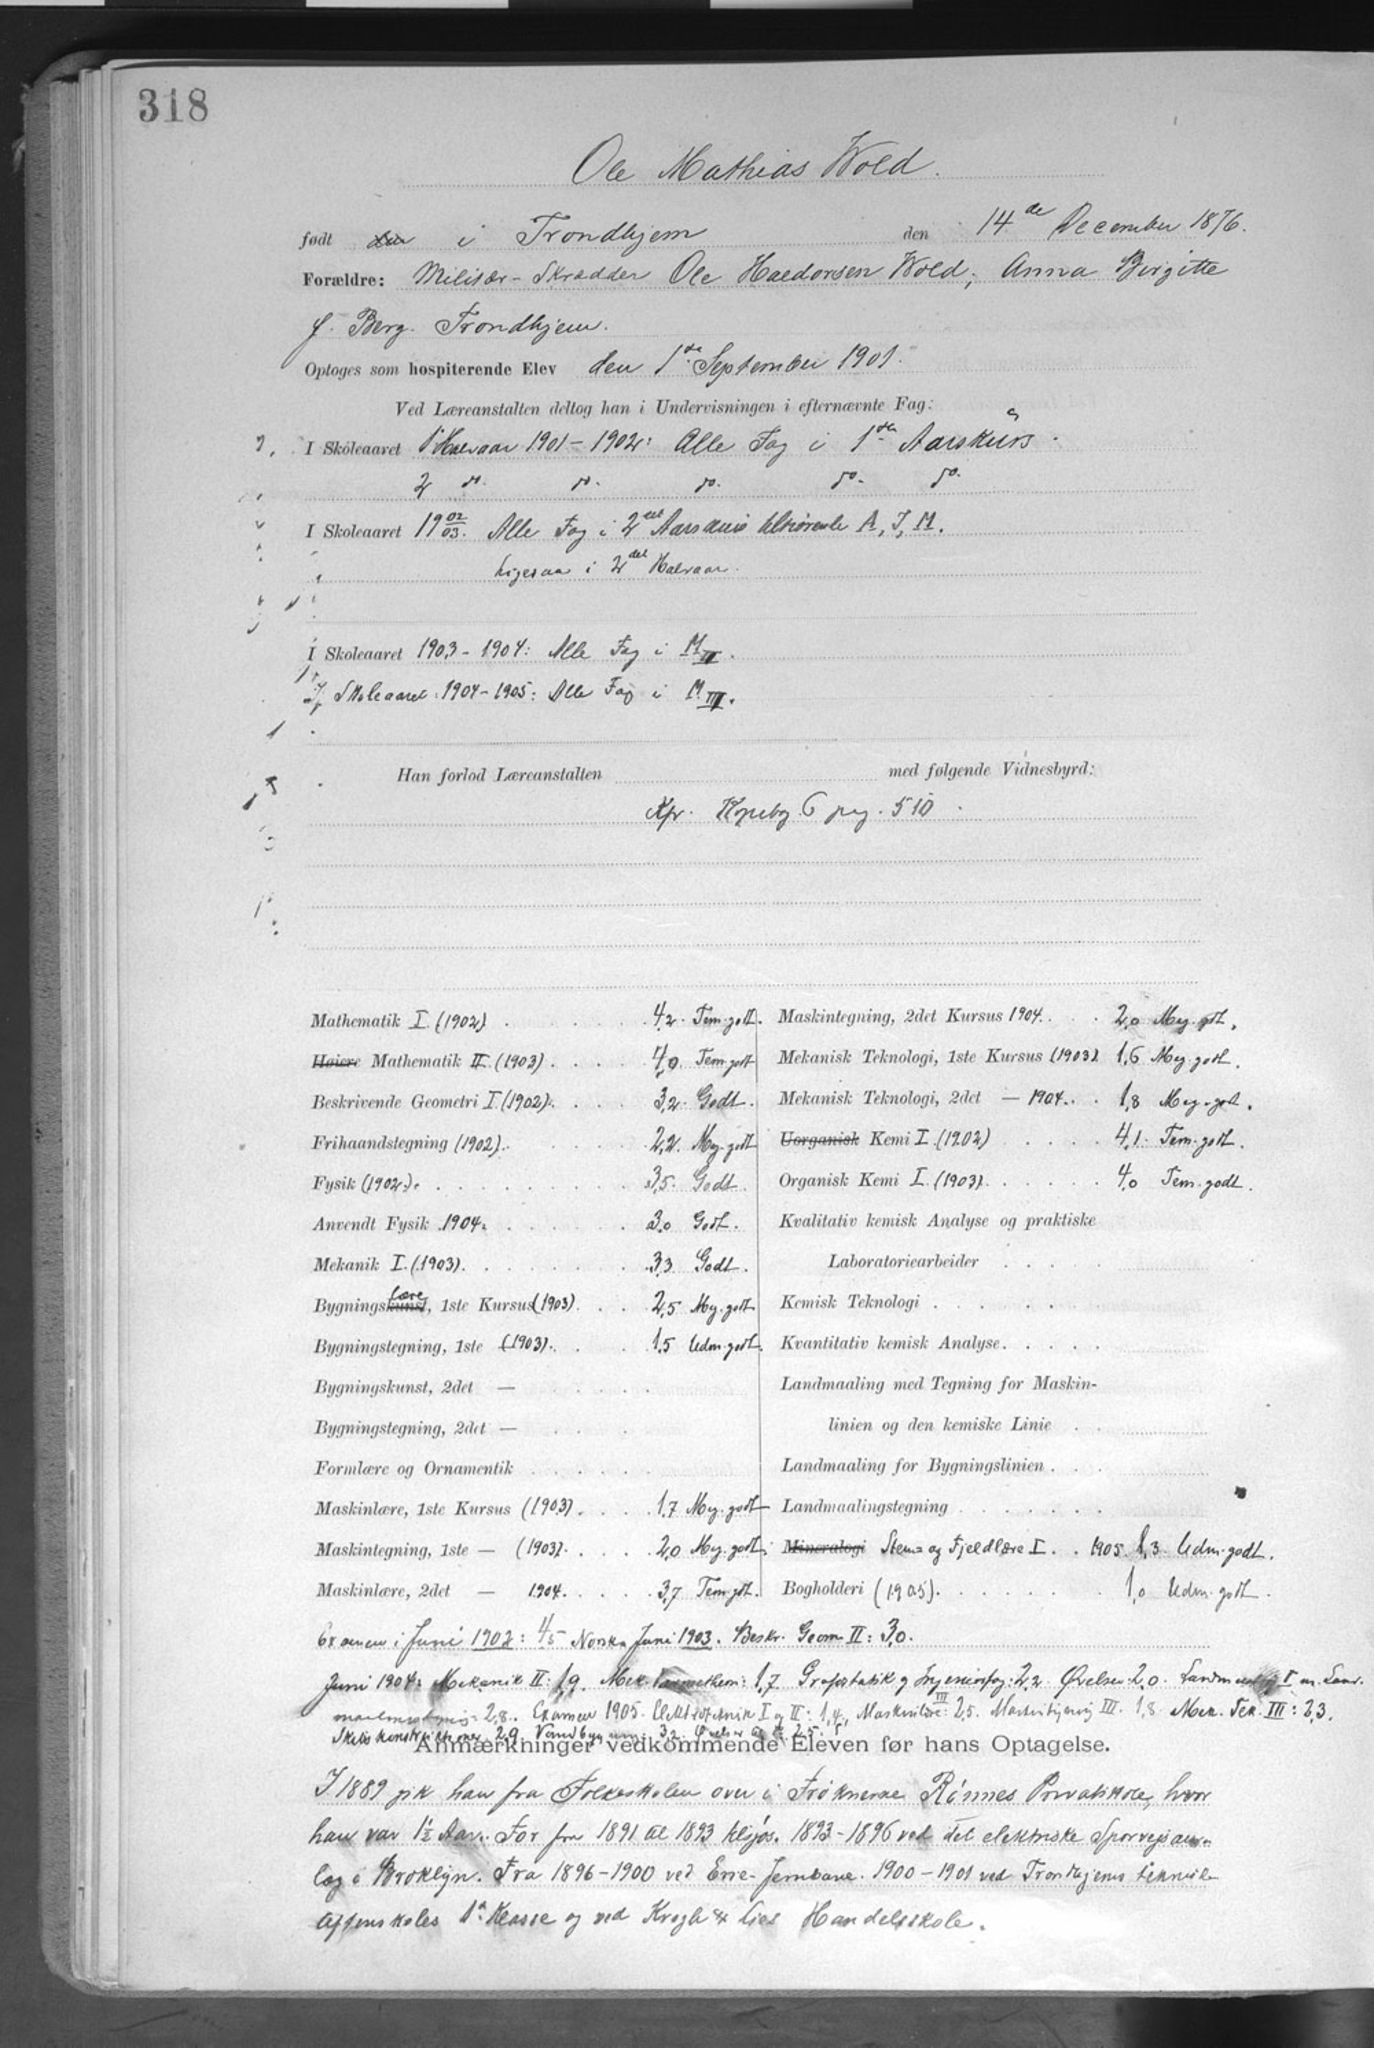 318
Ole Mathias Wold.
født den i Trondhjem den 14de December 1876.
Forældre: Militær-Skrædder Ole Haldorsen Wold; Anna Birgitte
f. Berg. Trondhjem.
Optoges som hospiterende Elev den 1ste September 1901.
Ved Læreanstalten deltog han i Undervisningen i efternævnte Fag:
I Skoleaaret 1' Halvaar 1901-1902: Alle Fag i 1ste Aarskurs.
2 do. do. do. do. do.
I Skoleaaret 19 02/03. Alle Fag i 2det Aarskurs tilhørende A, I, M.
Ligesaa i 2det Halvaar.
I Skoleaaret 1903-1904: Alle Fag i M III.
I Skoleaaret 1904-1905: Alle Fag i M III.
Han forlod Læreanstalten med følgende Vidnesbyrd:
Kfr. Kopibog 6 pag. 510
Mathematik I (1902) 4,2 Tem. godt.
Høiere Mathematik II (1903) 4,0 Tem. godt
Beskrivende Geometri I (1902) 3,2 Godt.
Frihaandstegning (1902) 2,2 Meg. godt
Fysik (1902) 3,5 Godt
Anvendt Fysik 1904 3,0 Godt.
Mekanik I (1903) 3,3 Godt.
Bygningskunst lære, 1ste Kursus (1903) 2,5 Meg. godt
Bygningstegning, 1ste (1903) 1,5 Udm. godt.
Bygningskunst, 2det —
Bygningstegning, 2det —
Formlære og Ornamentik
Maskinlære, 1ste Kursus (1903) 1,7 Meg. godt
Maskintegning, 1ste — (1903) 2,0 Meg. godt
Maskinlære, 2det — 1904 3,7 Tem. godt.
Maskintegning, 2det Kursus 1904 2,0 Meg. godt.
Mekanisk Teknologi, 1ste Kursus (1903) 1,6 Meg. godt.
Mekanisk Teknologi, 2det — 1904 1,8 Meg. godt.
Uorganisk Kemi I (1902) 4,1 Tem. godt.
Organisk Kemi I (1903) 4,0 Tem. godt.
Kvalitativ kemisk Analyse og praktiske
Laboratoriearbeider
Kemisk Teknologi
Kvantitativ kemisk Analyse
Landmaaling med Tegning for Maskin-
linien og den kemiske Linie
Landmaaling for Bygningslinien
Landmaalingstegning
Mineralogi Sten- og Fjeldlære I 1905 1,3 Udm. godt.
Bogholderi (1905) 1,0 Udm. godt.
Examen i Juni 1902: 4/5 Norsk Juni 1903. Beskr. Geom II: 3,0.
Juni 1904: Mekanik II: 1,9. Mek. 1,7 Grafostatik 2,2 Øvelser 2,0.
2,8. Examen 1905. Elektroteknik I og II: 1,4, Maskinlære III: 2,5. Maskintegning III. 1,8. Mek. Tek. III: 2,3.
2,9 3,2. 2,5.
Anmærkninger vedkommende Eleven før hans Optagelse.
I 1889 gik han fra Folkeskolen over i Frøknerne Rønnes Privatskole, hvor
han var 1½ Aar. For fra 1891 til 1893 tilsjøs. 1893-1896 ved det elektriske Sporveisan-
læg i Broklyn. Fra 1896-1900 ved Erie-Jernbane. 1900-1901 ved Trondhjems tekniske
Aftenskoles 1ste Klasse og ved Krogh & Lies Handelsskole.